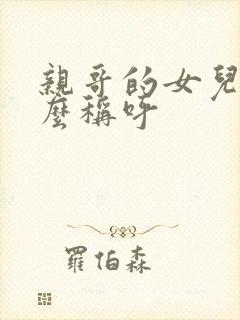 親哥的女兒
麼稱呼
羅伯森